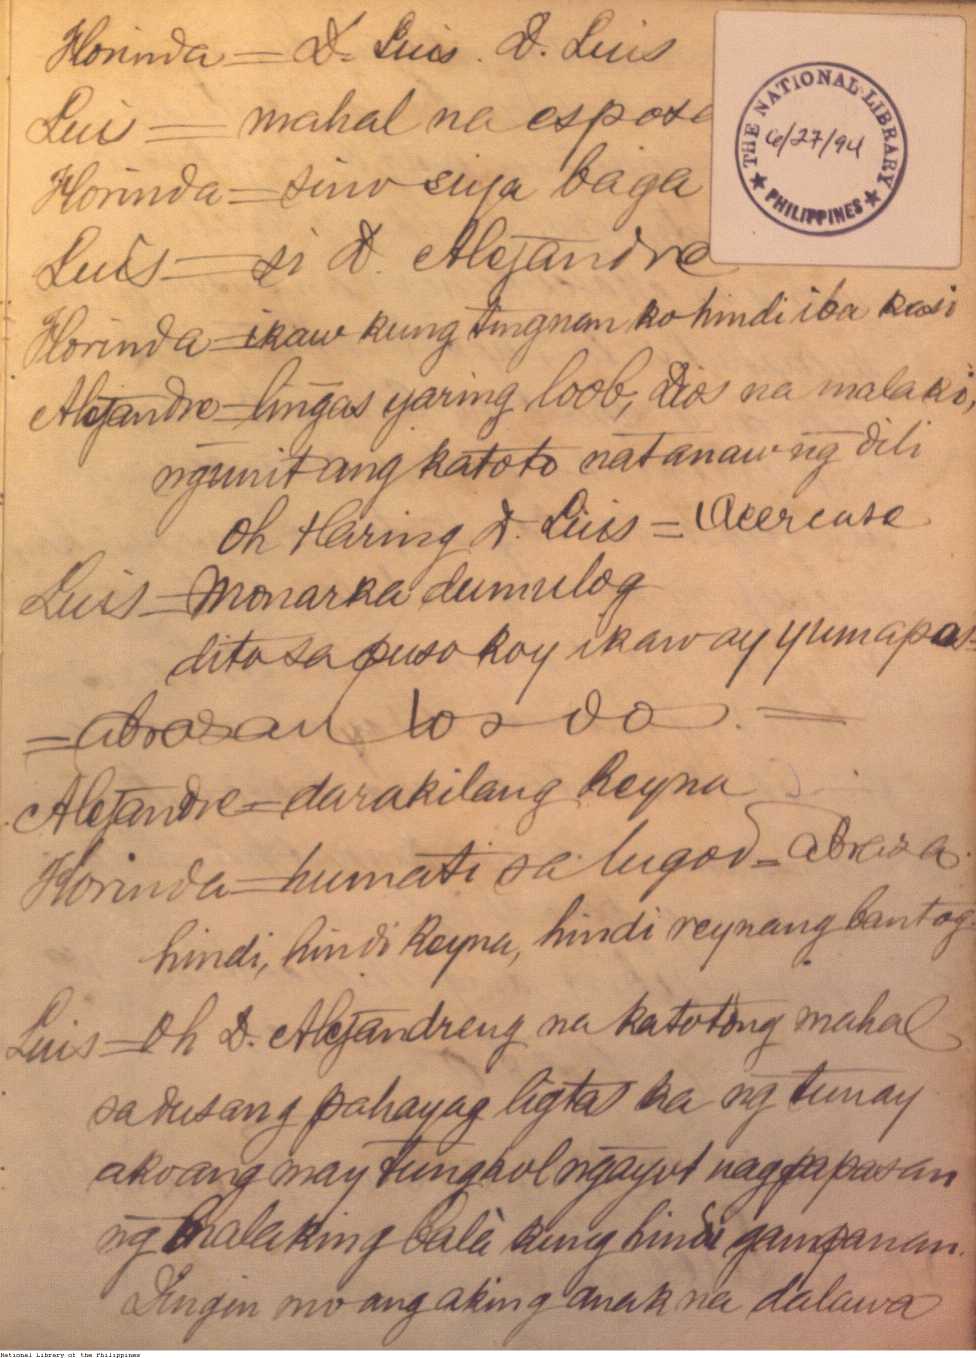 Florinda = D. Luis. D. Luis
Luis = mahal na esposa
Florinda = sino siya baga
Luis = si D. Alejandre
Florinda = ikaw kung tingnan ko hindi iba kasi
Alejandre = lingas yaring loob, Dios na malaki,
ngunit ang katoto natanaw ng dili
Oh Haring D. Luis = Acercase
Luis = Monarka dumulog
dito sa puso koy ikaw ay yumapos
= abrasan los do. =
Alejandre = darakilang Reyna
Florinda = humati sa lugod = abraza.
hindi, hindi Reyna, hindi reynang bantog.
Luis = Oh D. Alejandreng na katotong mahal
sa dusang pahayag ligtas ka ng tunay
ako ang may tungkol ngayot nagpapasan
ng malaking balà kung hindi gampanan.
Lingin mo ang aking anak na dalawa
THE NATIONAL LIBRARY
6/27/94
PHILIPPINES
National Library of the Philippines